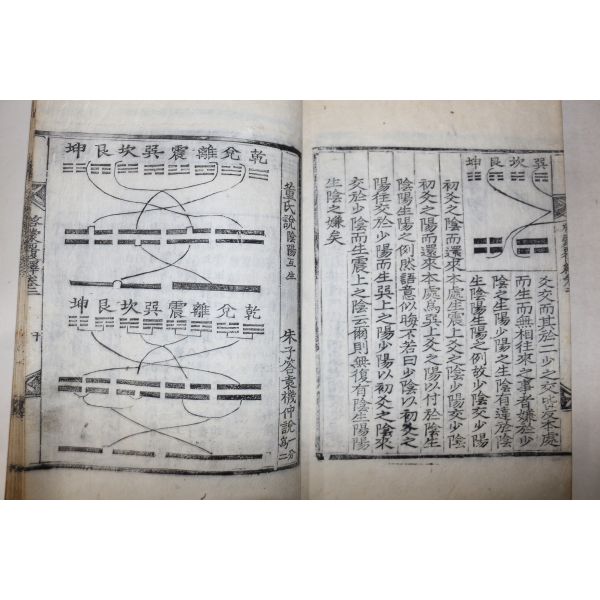 巽坎艮坤
爻交而其於二少之交皆反本處
而生而無相往來之事者嫌於少
陰之生陽少陽之生陰有違於陰
生陰陽生陽之例故少陰交少陽
初爻之陰而還來本處生震上爻之陰少陽交少陰
初爻之陽而還來本處爲巽上爻之陽以付於陰生
陰陽生陽之例然語意似晦不若曰少陰以初爻之
陽往交於少陽而生巽上之陽少陽以初爻之陰來
交於少陰而生震上之陰云爾則無復有陰生陽陽
生陰之嫌矣
氏說陰陽互生
乾兌離震巽坎艮坤
朱子答袁機仲說一分爲二
乾兌離震巽坎艮坤